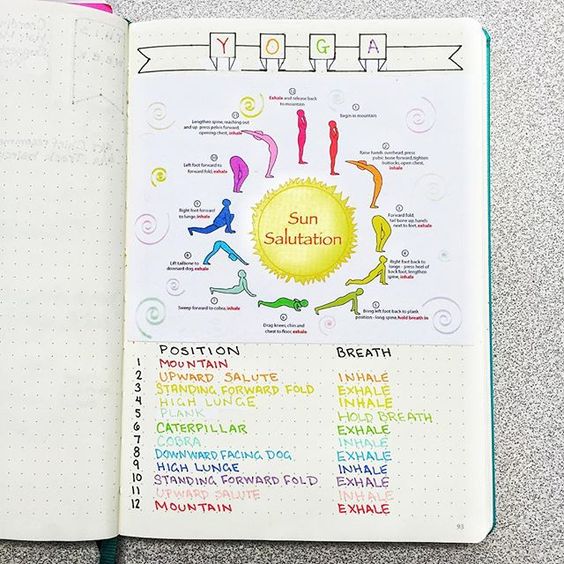 YOGA
12
Exhale and release back
to mountain
1
Begin in mountain
11
Lengthen spine, reaching out
and up press pelvis forward,
opening chest, inhale
2
Raise hands overhead, press
pubic bone forward, tighten
buttocks, open chest,
inhale
10
Left foot forward to
forward fold, exhale
3
Forward fold,
tail bone up, hands
next to feet, exhale
9
Right foot forward
to lunge, inhale
Sun
Salutation
4
Right foot back to
lunge - press heel of
back foot, lengthen
spine, inhale
8
Lift tailbone to
downward dog, exhale
7
Sweep forward to cobra, inhale
6
Drag knees, chin and
chest to floor, exhale
5
Bring left foot back to plank
position - long spine, hold breath in
POSITION BREATH
1 MOUNTAIN
2 UPWARD SALUTE INHALE
3 STANDING FORWARD FOLD EXHALE
4 HIGH LUNGE INHALE
5 PLANK HOLD BREATH
6 CATERPILLAR EXHALE
7 COBRA INHALE
8 DOWNWARD FACING DOG EXHALE
9 HIGH LUNGE INHALE
10 STANDING FORWARD FOLD EXHALE
11 UPWARD SALUTE INHALE
12 MOUNTAIN EXHALE
93